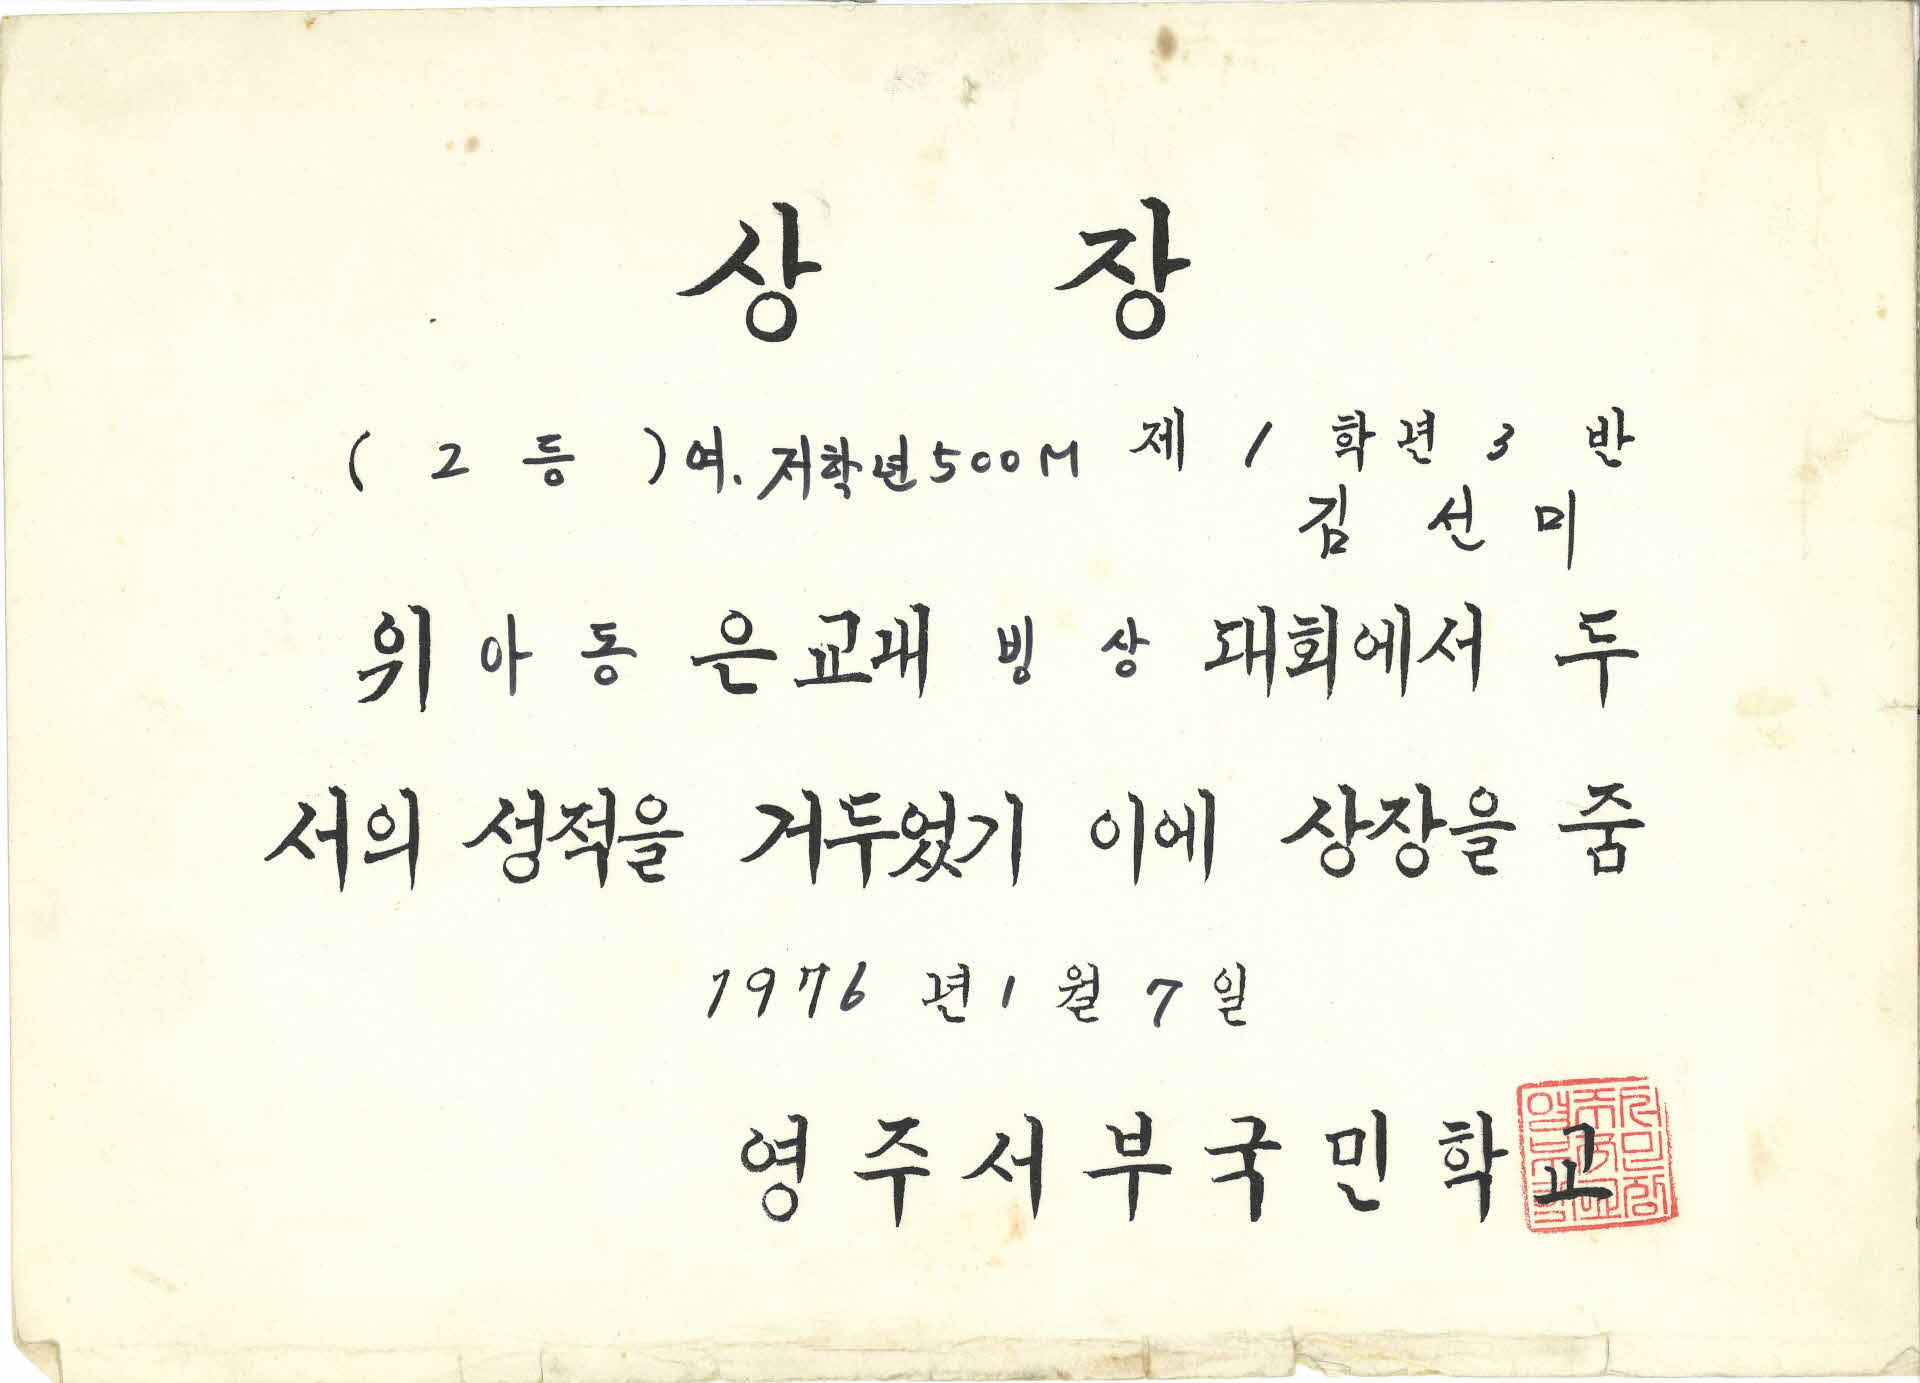 상 장
( 2 등 ) 여. 저학년 500M 제 1 학년 3 반
김 선 미
위 아 동 은 교내 빙 상 대회에서 두
서의 성적을 거두었기 이에 상장을 줌
1976 년 1 월 7 일
영 주 서 부 국 민 학 교